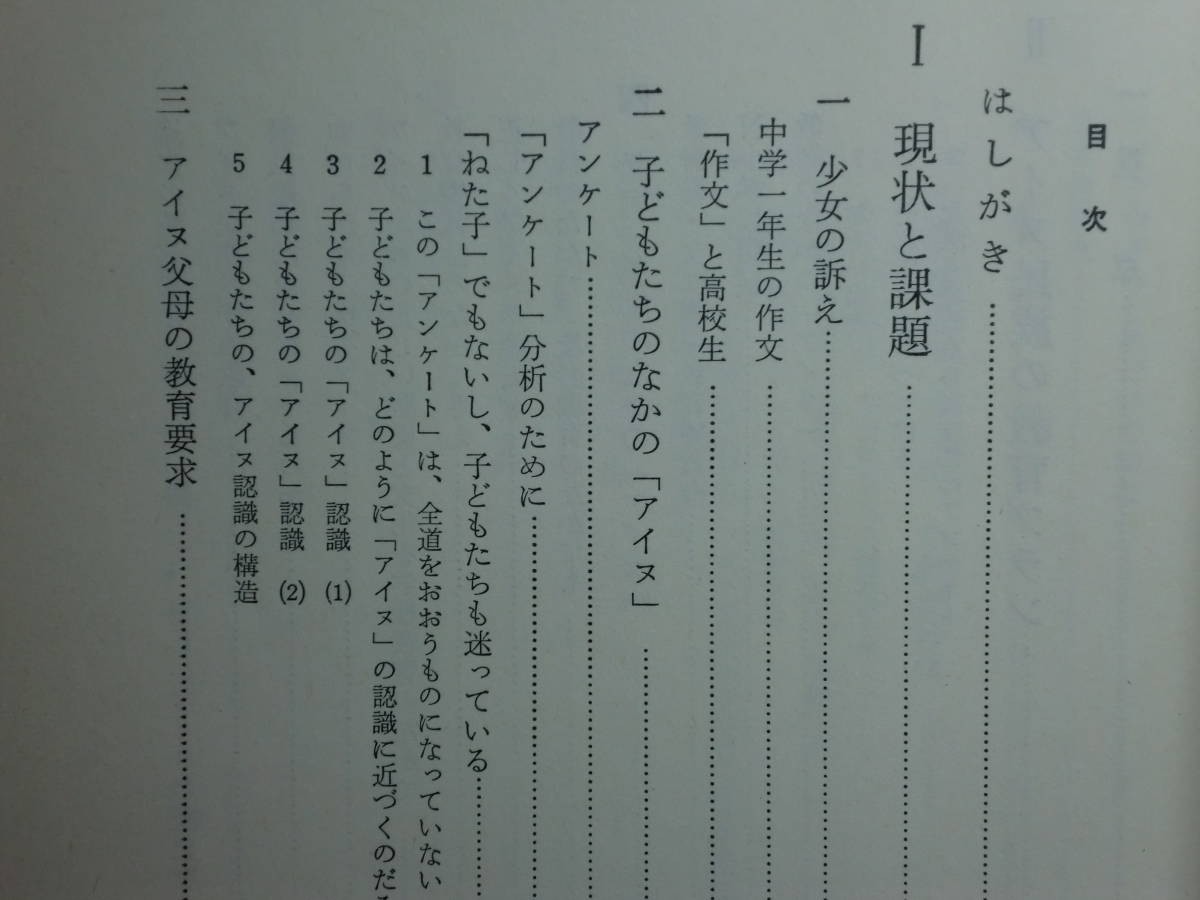 目次
はしがき……………………
Ⅰ 現状と課題……………………
一 少女の訴え……………………
中学一年生の作文……………………
「作文」と高校生……………………
二 子どもたちのなかの「アイヌ」……………………
アンケート……………………
「アンケート」分析のために……………………
「ねた子」でもないし、子どもたちも迷っている……………………
1 この「アンケート」は、全道をおおうものになっていない
2 子どもたちは、どのように「アイヌ」の認識に近づくのだ
3 子どもたちの「アイヌ」認識 (1)
4 子どもたちの「アイヌ」認識 (2)
5 子どもたちの、アイヌ認識の構造
三 アイヌ父母の教育要求……………………